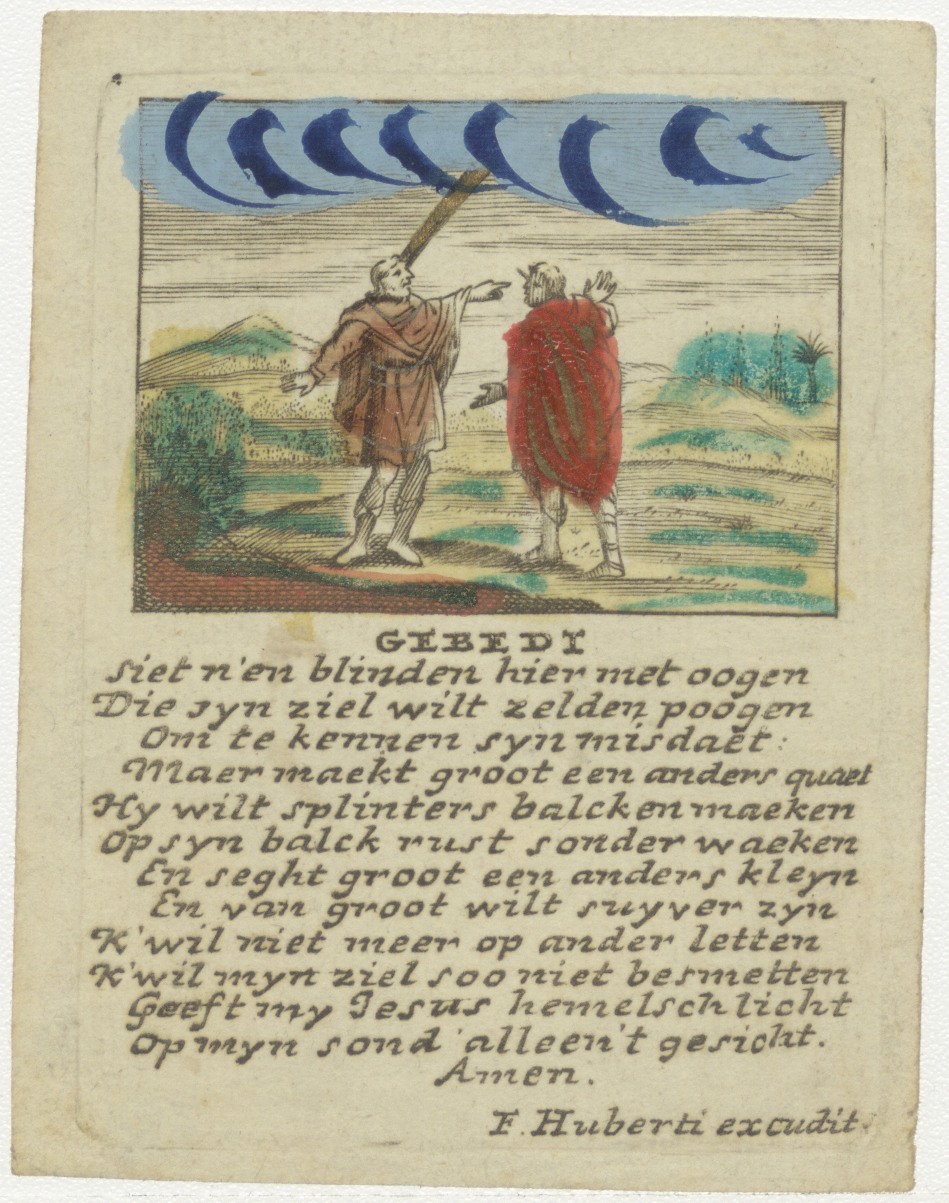 GEBEDT
Siet n'en blinden hier met oogen
Die syn ziel wilt zelden poogen
Om te kennen syn misdaet:
Maer maekt groot een anders quaet
Hy wilt splinters balcken maeken
Op syn balck rust sonder waeken
En seght groot een anders kleyn
En van groot wilt suyver zyn
K'wil niet meer op ander letten
K'wil myn ziel soo niet besmetten
Geeft my Jesus hemelsch licht
Op myn sond alleen't gesicht.
Amen.
F. Huberti excudit.